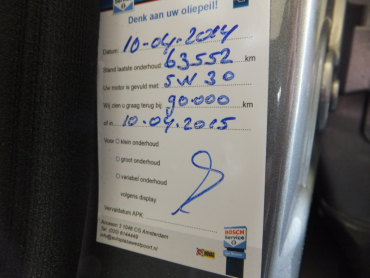 Denk aan uw oliepeil!
Datum: 10-04-2014
Stand laatste onderhoud: 63552 km
Uw motor is gevuld met: 5W30
Wij zien u graag terug bij: 90.000 km
of in 10.04.2015
Voor klein onderhoud
groot onderhoud
variabel onderhoud
volgens display
Vervaldatum APK:
1046 CG Amsterdam
BOSCH
Service